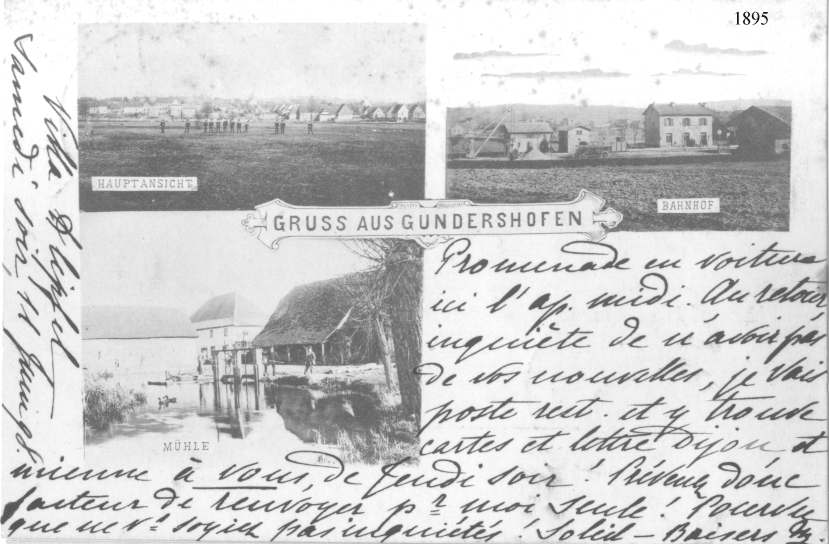 1895
HAUPTANSICHT
BAHNHOF
GRUSS AUS GUNDERSHOFEN
MÜHLE
Samedi soir, 11 Juin 98.
Villa
Promenade en voiture
ici l'ap. midi. Au retour,
inquiète de n'avoir pas
de vos nouvelles, je vais
poste rest. et y trouve
cartes et lettre Dijon, et
mienne à vous, de Jeudi soir! Prévenez donc
facteur de renvoyer pr moi seule! Pourvu
que ne vs soyiez pas inquiétés! Soleil - Baisers